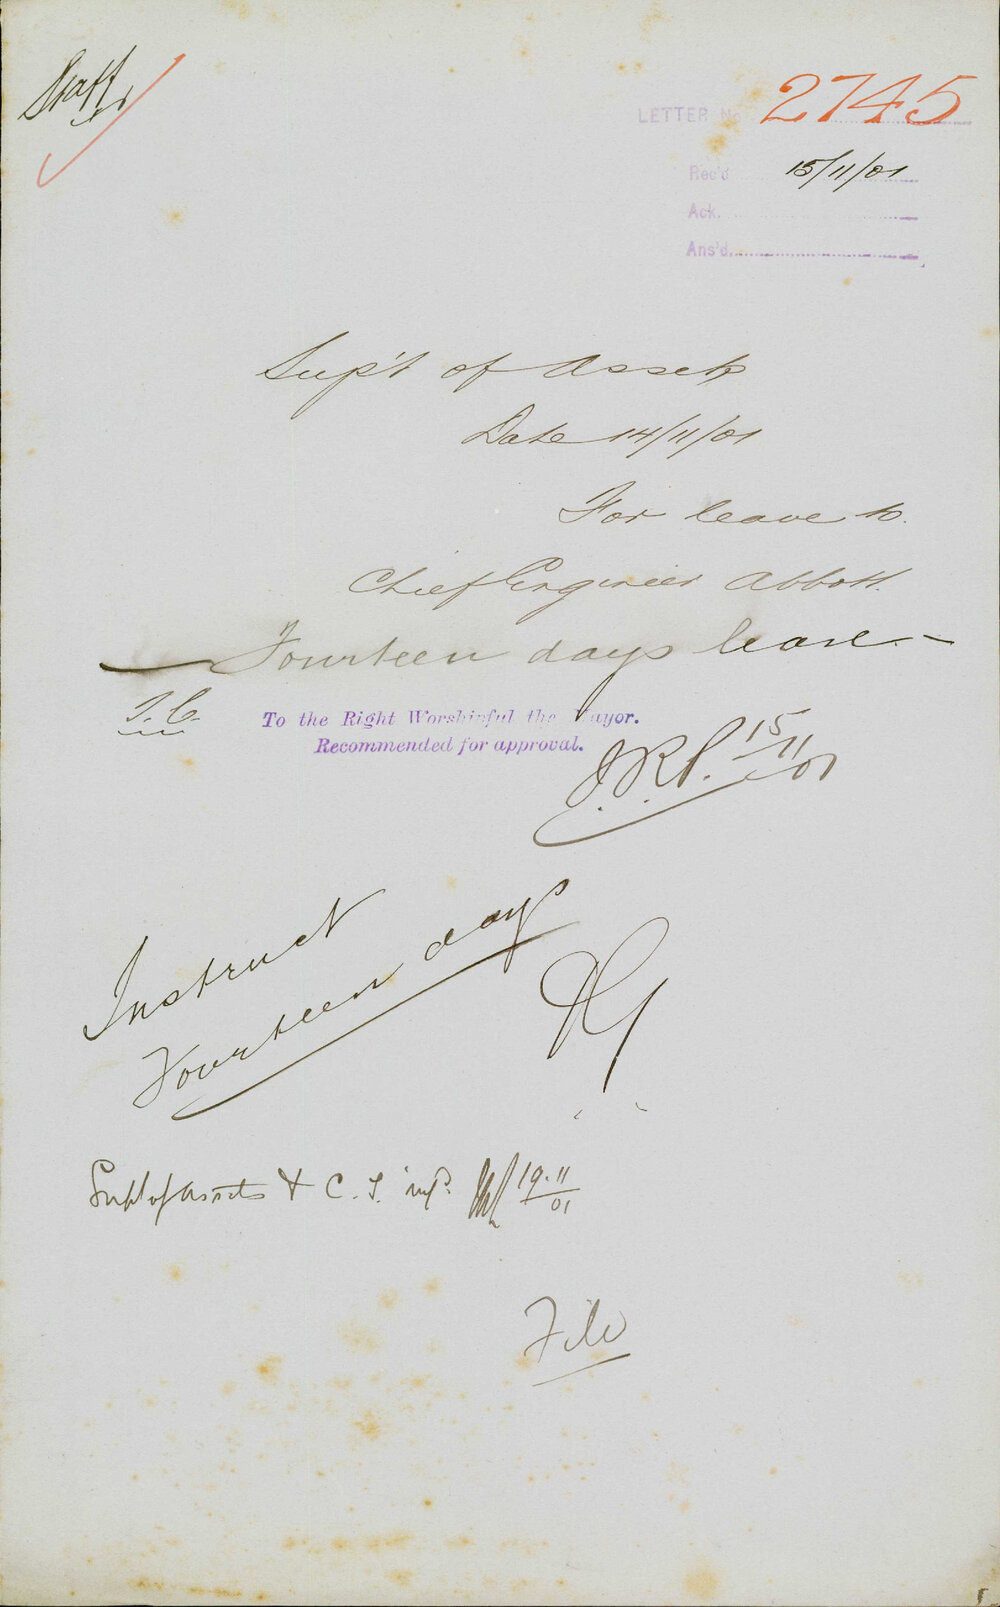 Staff
LETTER No 2745
Rec'd 15/11/01
Ack.
Ans'd.
Sup't of Assets
Date 14/11/01
For leave to
Chief Engineer Abbott.
Fourteen days leave
T.C.
To the Right Worshipful the Mayor.
Recommended for approval.
J.R.P. 15/11/01
Instruct
Fourteen days
Supt of Assets & C. S. inf'd. 19.11/01
File